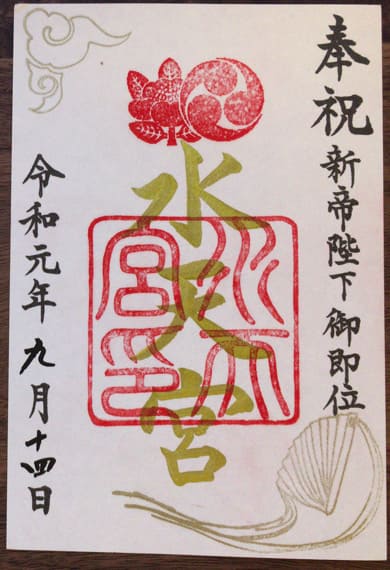 奉祝 新帝陛下御即位
水天宮
水天宮印
令和元年九月十四日